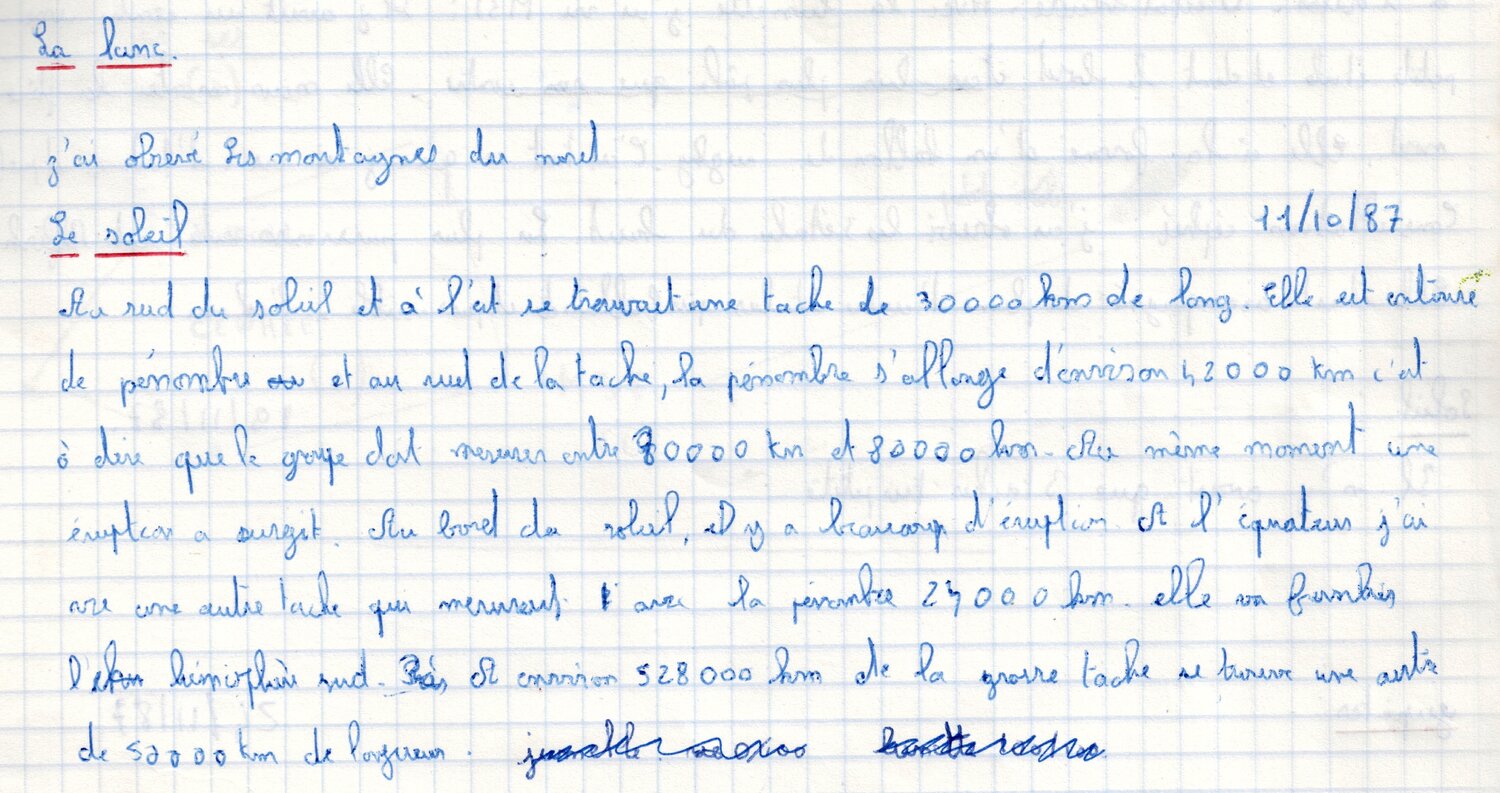 La lune.
j'ai obsrevé les montagnes du nord
Le soleil 11/10/87
Au sud du soleil et à l'est se trouvait une tache de 30000 km de long. Elle est entouré
de pénombre et au sud de la tache, la pénombre s'allonge d'environ 42000 km c'est
à dire que le groupe doit mesurer entre 70000 km et 80000 km. Au même moment une
éruption a surgit. Au bord du soleil, il y a beaucoup d'éruption. A l'équateur j'ai
vue une autre tache qui mesurent avec la pénombre 24000 km. elle va
l' hémisphère sud. A environ 528000 km de la grosse tache se trouve une autre
de 50000 km de longueur.